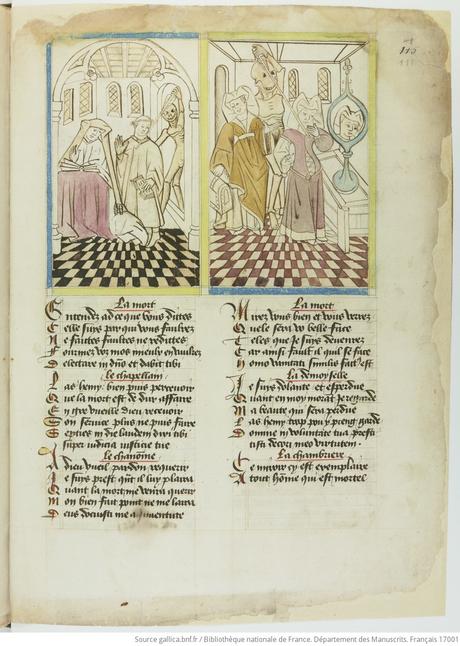 La mort
Entendez ad ce que vous dittes
Celle suys par qui vous faulrez
Ne faittes faultes ne redittes
vos mieulx en vauldrez
Delectare in dno et dabit tibi
le chapellain
Las hemy bien puis percevoir
Que la mort est de dur affaire
En gre vueille dieu recevoir
Son service plus ne me faire
Septies in die laudem dixi tibi
super iudicia iusticie tue
Le chanoine
A dieu vueil pardon requerir
Je suys prest quāt il luy plaira
Quant la mort me venra querir
Mon bien fait point ne me laira
Deus docuisti me a iuventute
La mort
Mirez vous bien et vous verrez
Quele sera vo belle face
Teles que je suys devenrez
Car ainsi fault il qui se face
Homo vanitati similis fact9 est
La demoyselle
Je suys dolante et esperdue
Quant en moy morat je regarde
Ma beaute qui sera perdue
Las hemy trop pou y preng garde
Domine in voluntate tua presti
tisti decori meo virtutem
La chambriere
Ce miroir cy est exemplaire
A tout hōme qui est mortel
Source gallica.bnf.fr / Bibliothèque nationale de France. Département des Manuscrits. Français 17001